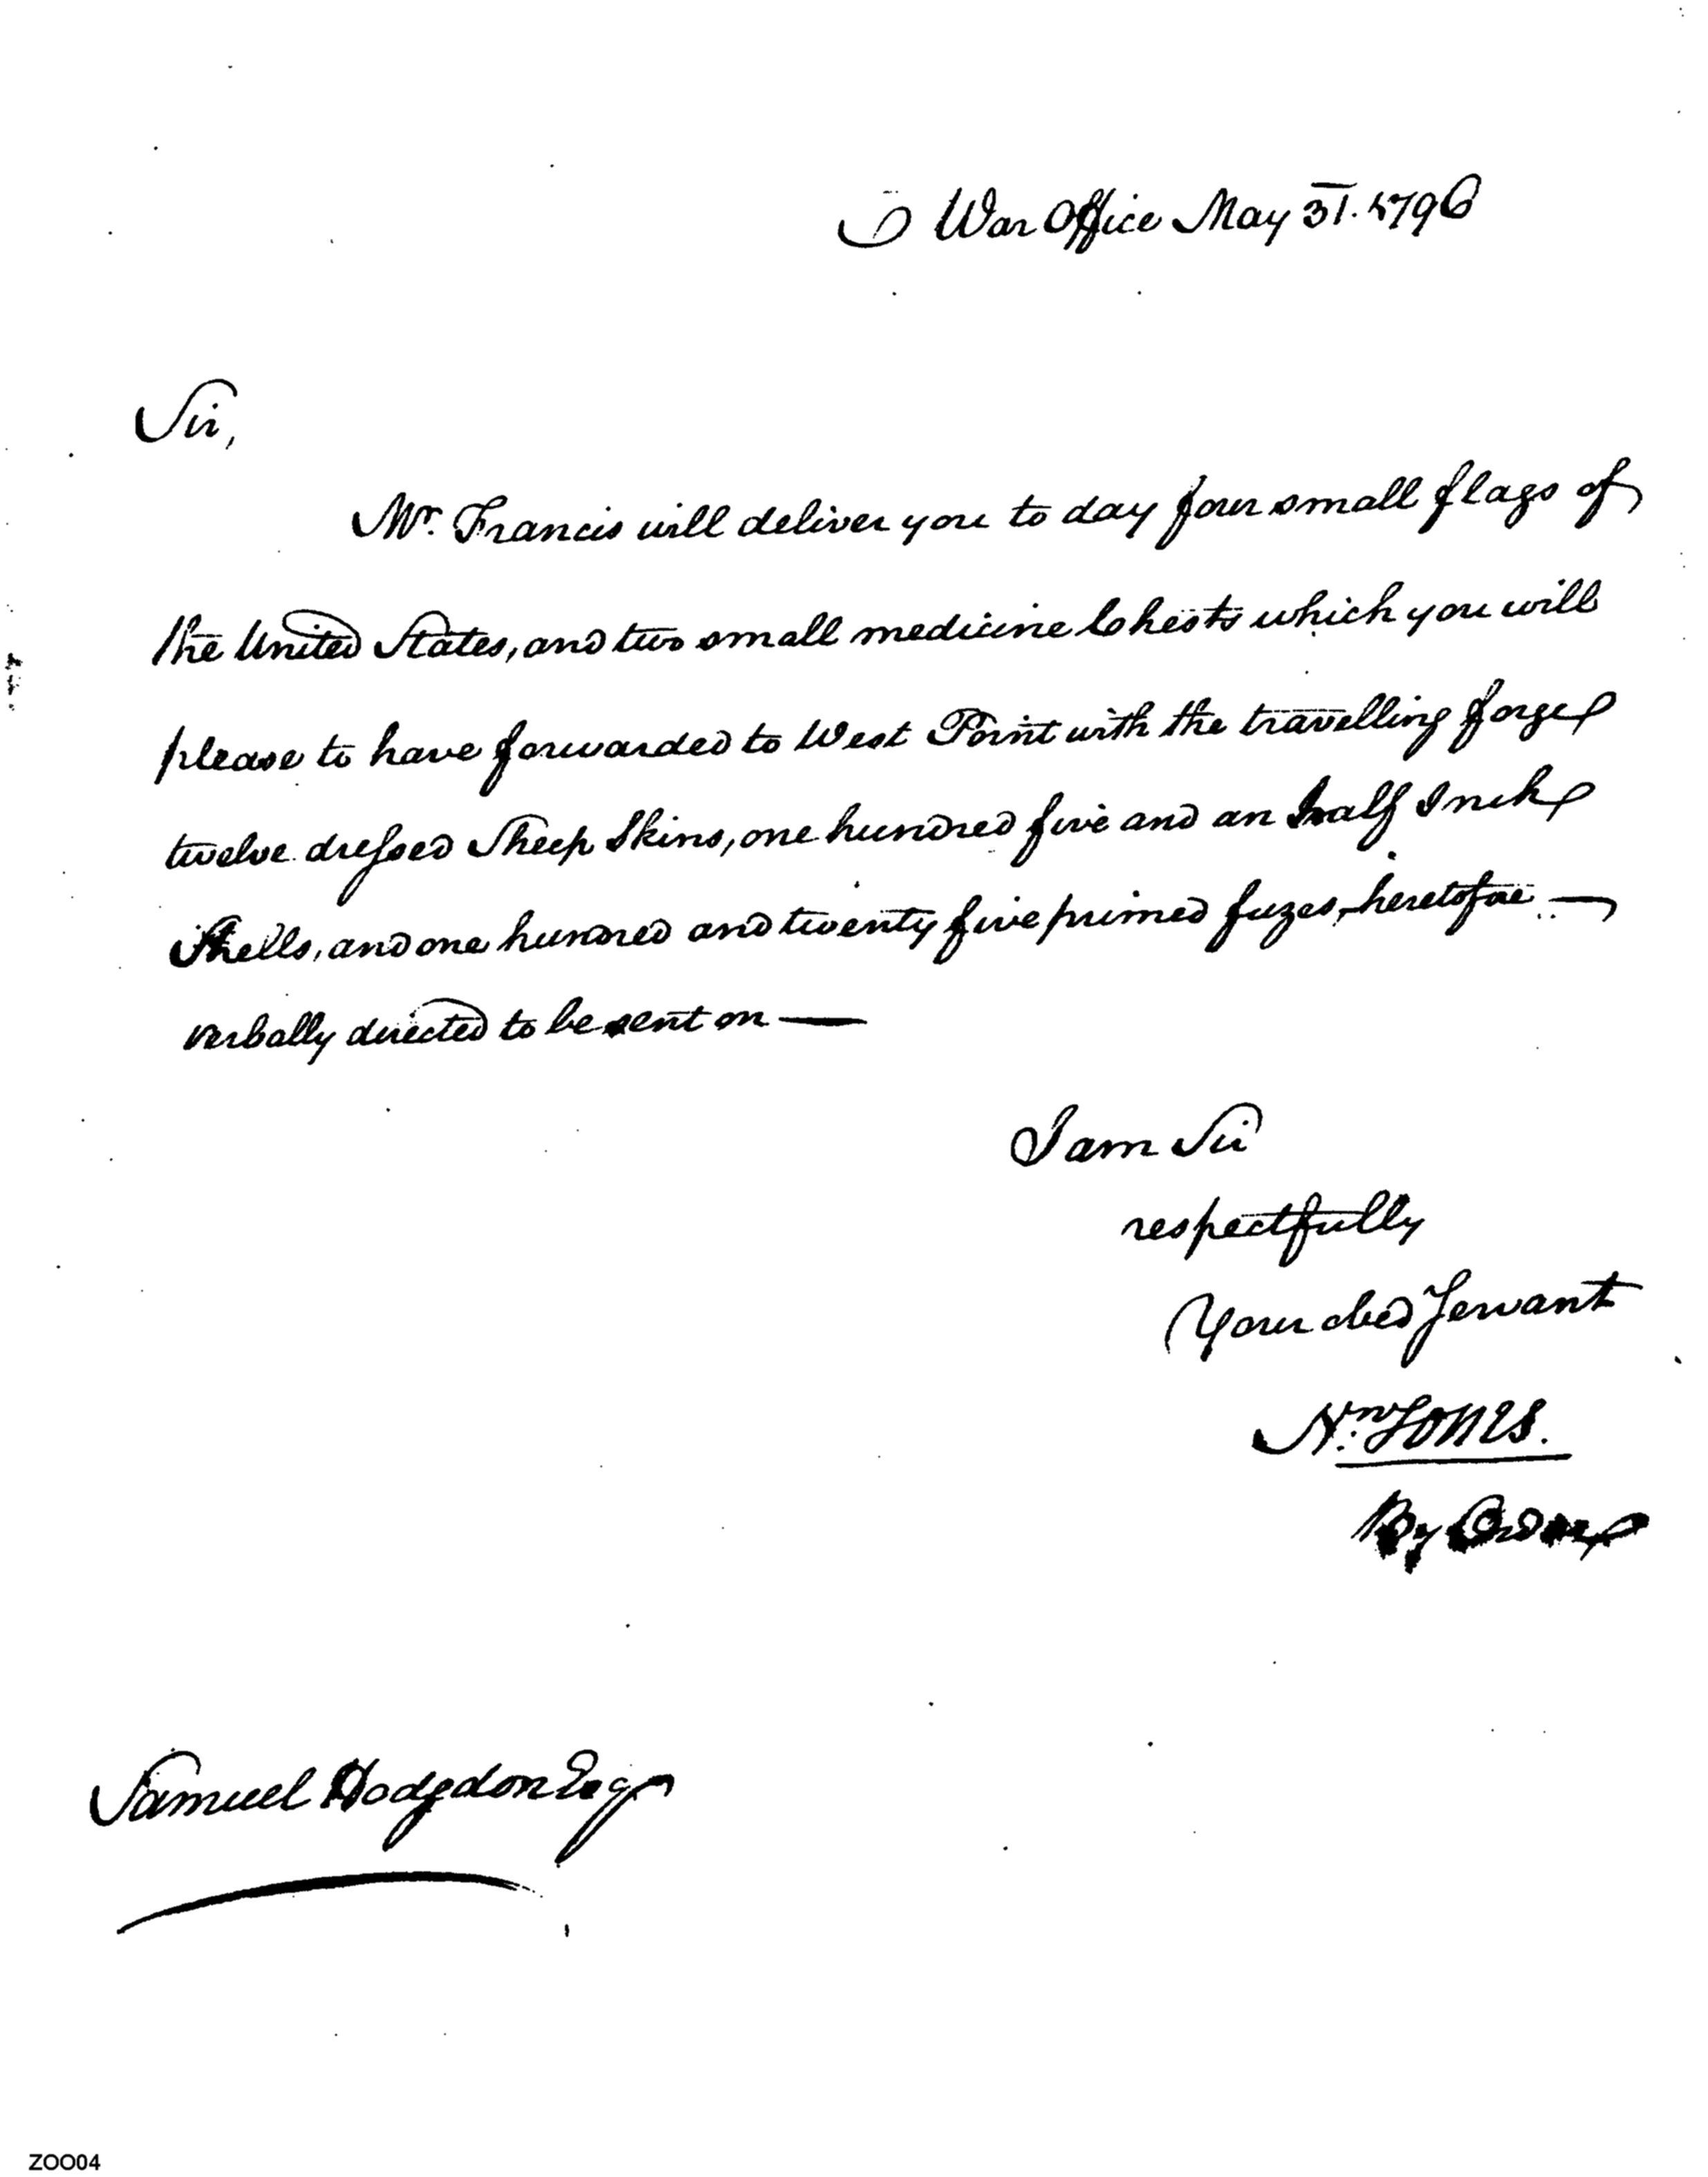 War Office May 31. 1796
Sir,
Mr. Francis will deliver you to day four small flags of
the United States, and two small medicine Chests which you will
please to have forwarded to West Point with the travelling forge
twelve dressed Sheep Skins, one hundred five and an half Inch
Shells, and one hundred and twenty five primed fuzes, heretofore —
verbally directed to be sent on —
I am Sir
respectfully
Your obed Servant
Nn Jones.
By Order
Samuel Hodgdon Esqr
ZOO04